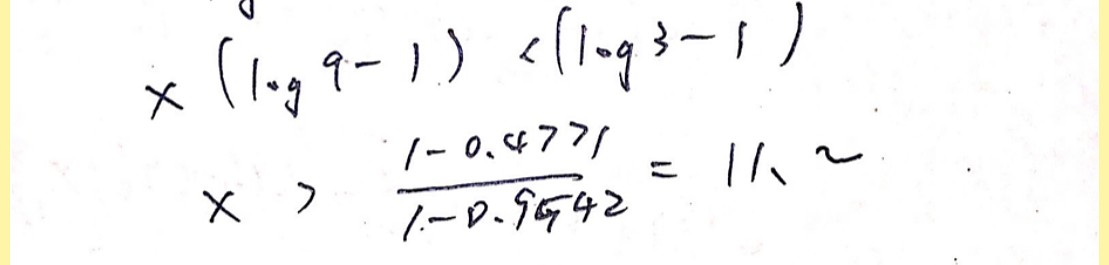 x (log 9 - 1) < (log 3 - 1)
x > \frac{1 - 0.4771}{1 - 0.9542} = 11. ~